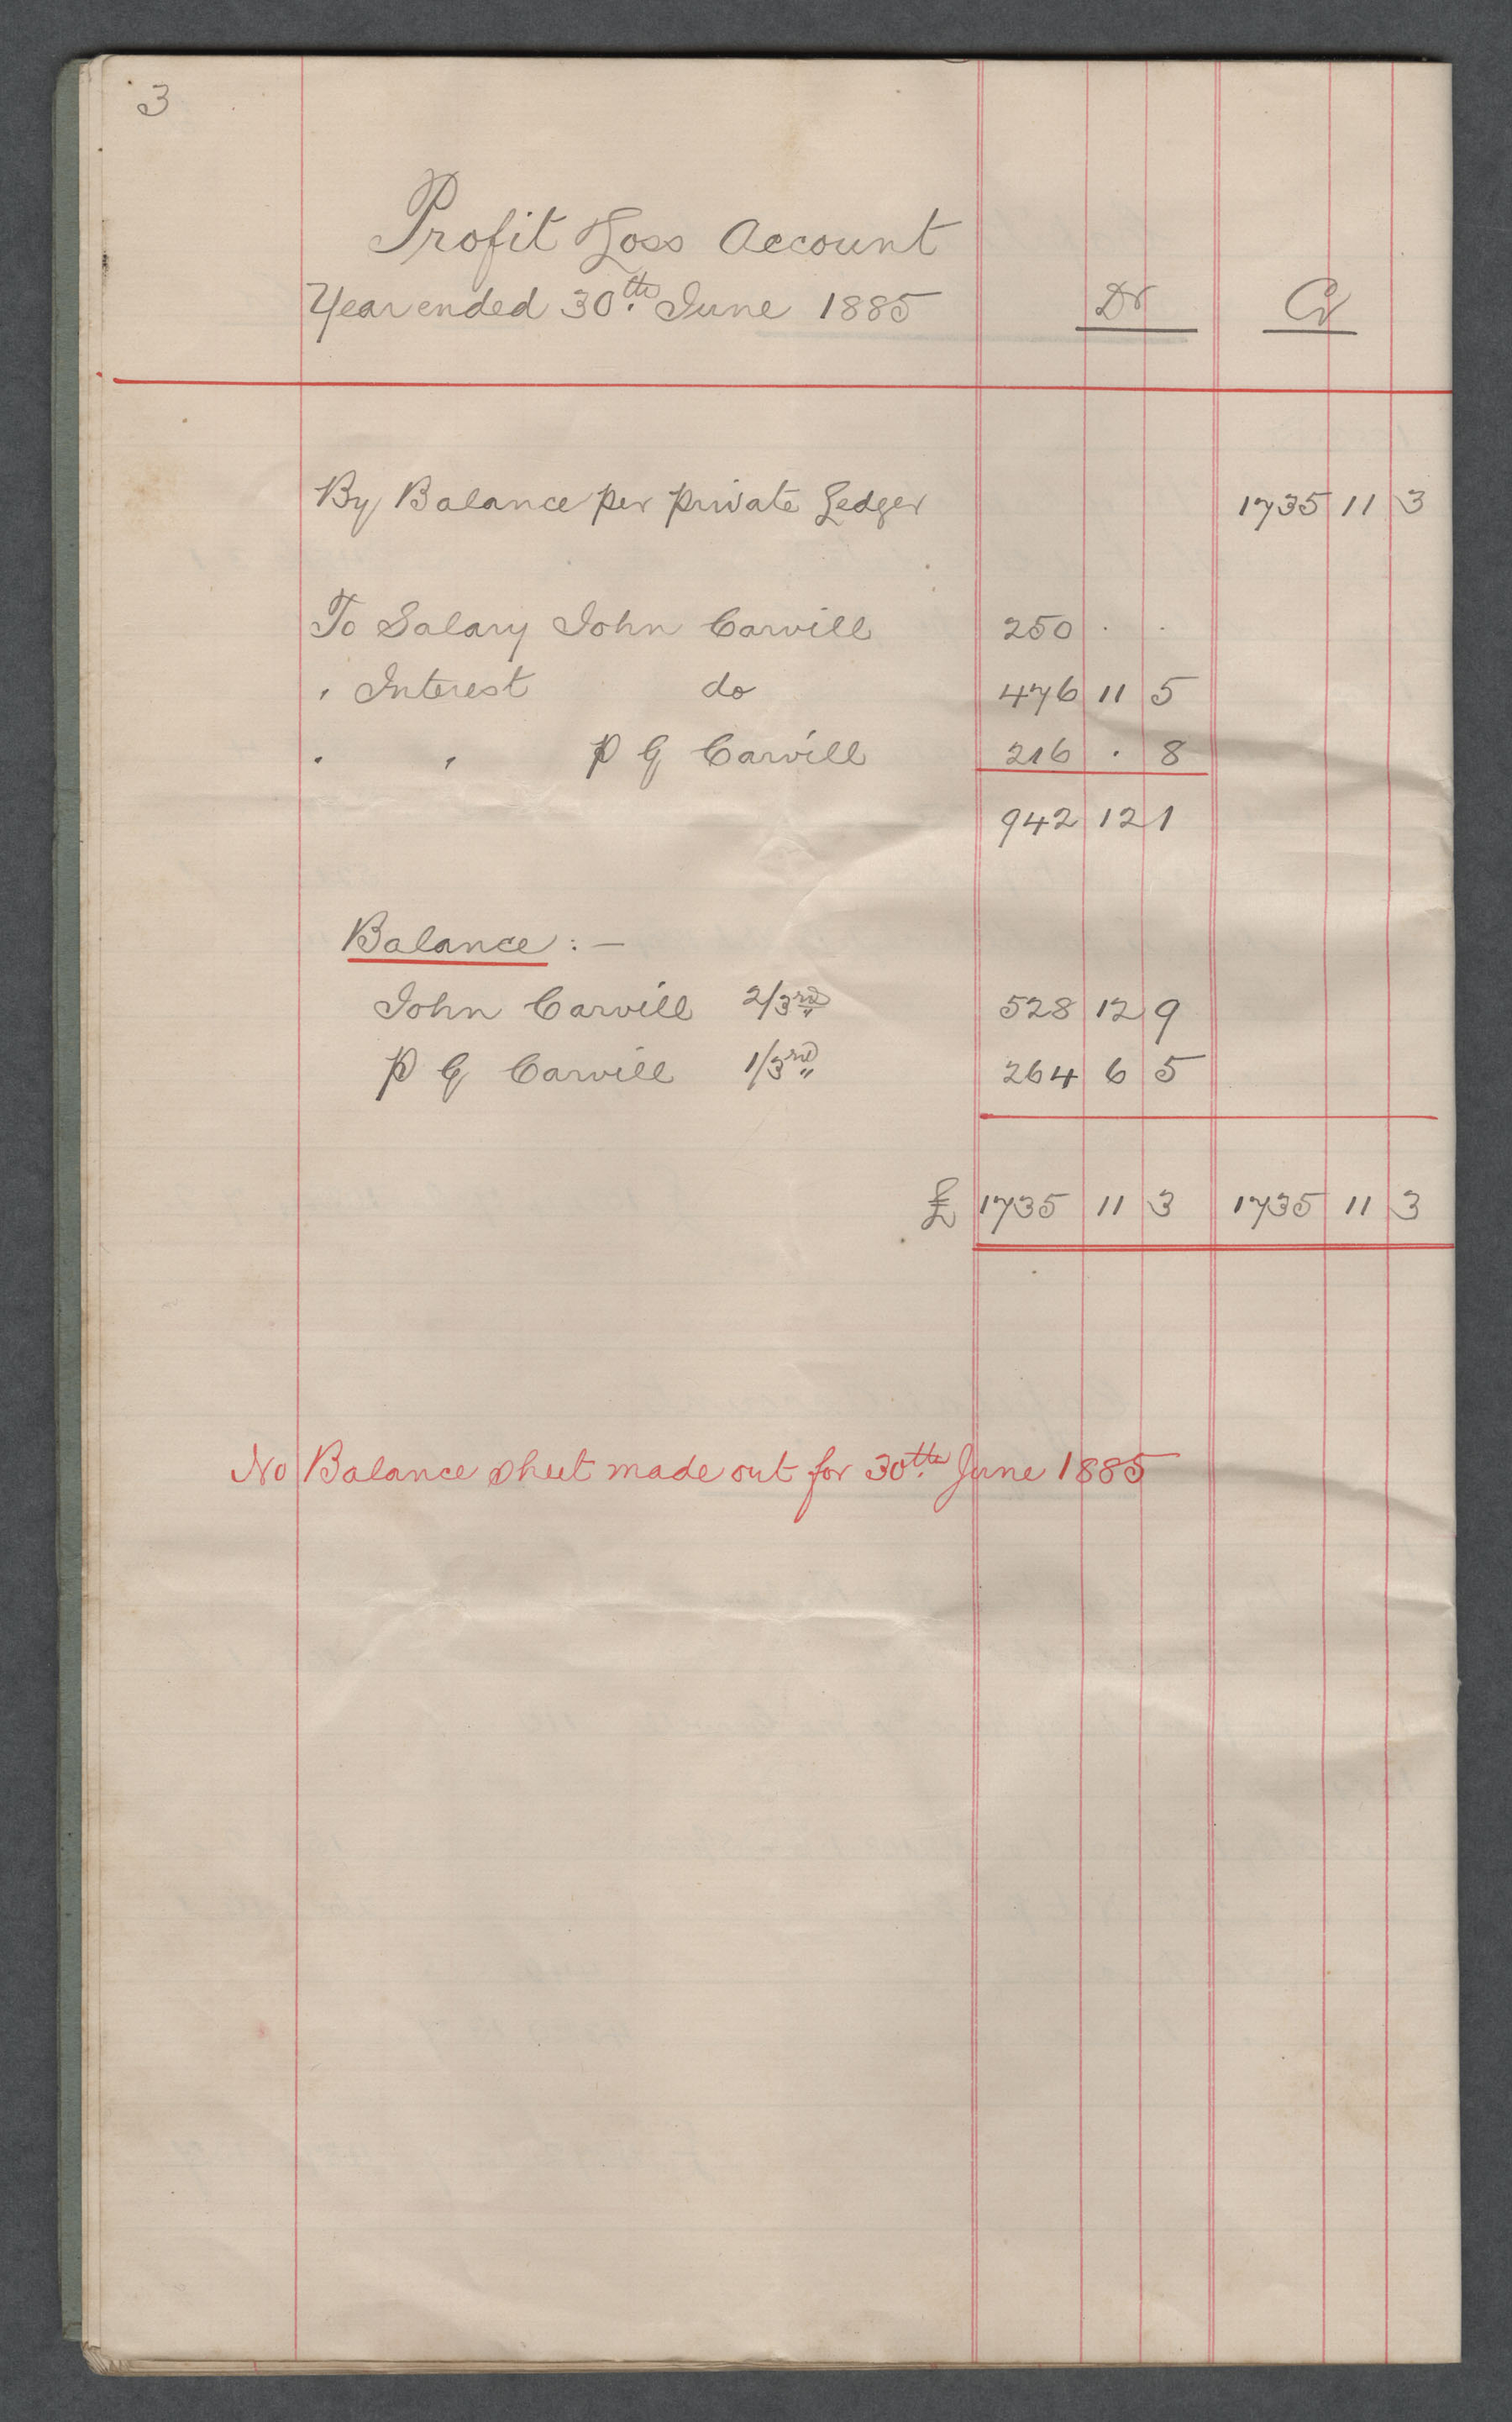 3
Profit & Loss Account
Year ended 30th. June 1885 Dr Cr
By Balance per private Ledger 1735 11 3
To Salary John Carvill 250 . .
" Interest do 476 11 5
" " P G Carvill 216 . 8
942 12 1
Balance :—
John Carvill 2/3rd" 528 12 9
P G Carvill 1/3rd" 264 6 5
£ 1735 11 3 1735 11 3
No Balance sheet made out for 30th. June 1885